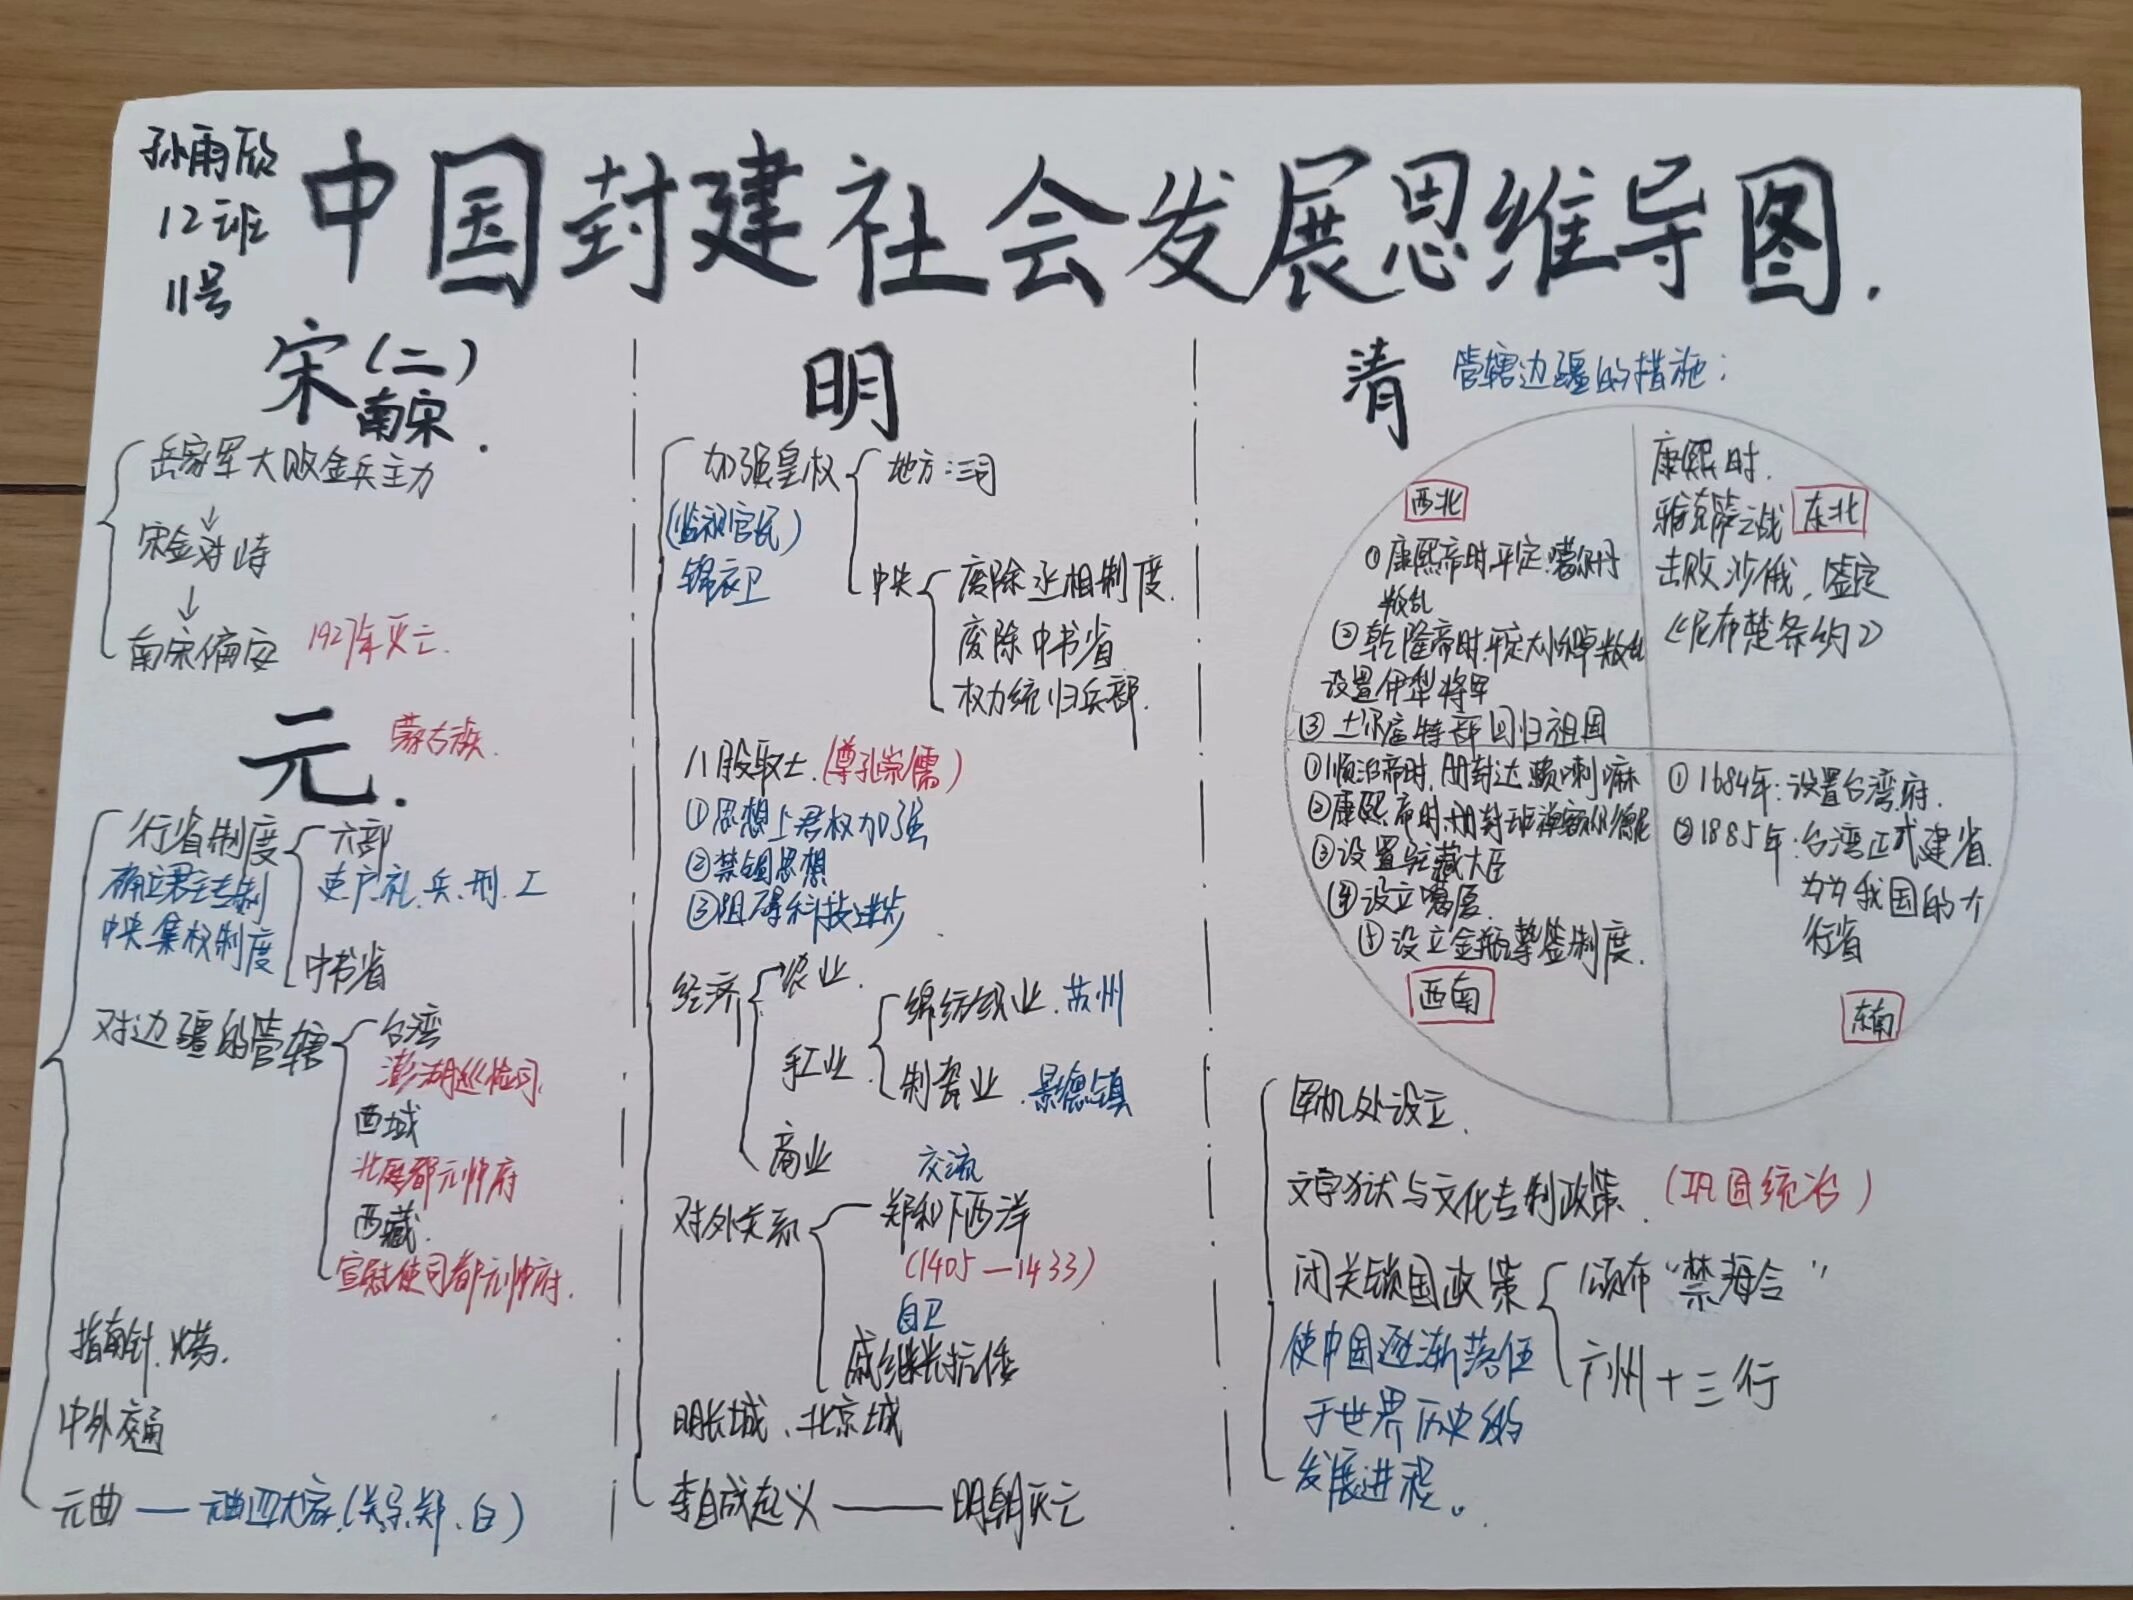 孙雨欣
12班
11号
中国封建社会发展思维导图.
宋(二)
南宋.
岳家军大败金兵主力
↓
宋金对峙
↓
南宋偏安 1927年灭亡.
元. 蒙古族.
行省制度
确立君主专制
中央集权制度
六部
吏户、礼、兵、刑、工
中书省
对边疆的管辖
台湾
澎湖巡检司.
西域
北庭都元帅府
西藏.
宣慰使司都元帅府.
指南针.火药.
中外交通
元曲——元曲四大家.(关、马、郑、白)
明
加强皇权
(监视官民)
锦衣卫
地方:三司
中央
废除丞相制度.
废除中书省
权力统归兵部.
八股取士.(尊孔崇儒)
①思想上君权加强
②禁锢思想
③阻碍科技进步.
经济
农业.
手工业.
棉纺织业.苏州
制瓷业.景德镇
商业
对外关系
交流
郑和下西洋
(1405—1433)
自卫
戚继光抗倭
明长城、北京城
李自成起义——明朝灭亡
清
管辖边疆的措施:
西北
①康熙帝时.平定噶尔丹
叛乱
②乾隆帝时.平定大小和卓叛乱
设置伊犁将军
③土尔扈特部回归祖国
康熙时.
雅克萨之战 东北
击败沙俄,签定
《尼布楚条约》
①顺治帝时.册封达赖喇嘛
②康熙帝时.册封班禅额尔德尼
③设置驻藏大臣
④设立噶厦.
④设立金瓶掣签制度.
西南
①1684年:设置台湾府.
②1885年:台湾正式建省.
为为我国的个
行省
东南
军机处设立.
文字狱与文化专制政策.(巩固统治)
闭关锁国政策
使中国逐渐落伍
于世界历史的
发展进程。
颁布"禁海令"
广州十三行